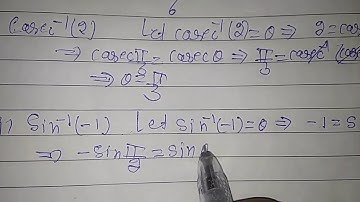 6
Cosec⁻¹(2) Let cosec⁻¹(2)=θ ⇒ 2=cos
⇒ cosec π/3 = cosecθ ⇒ π/3 = cosec⁻¹ (cose
⇒ θ = π/3
Sin⁻¹(-1) Let Sin⁻¹(-1)=θ ⇒ -1=S
⇒ -sin π/2 = sin